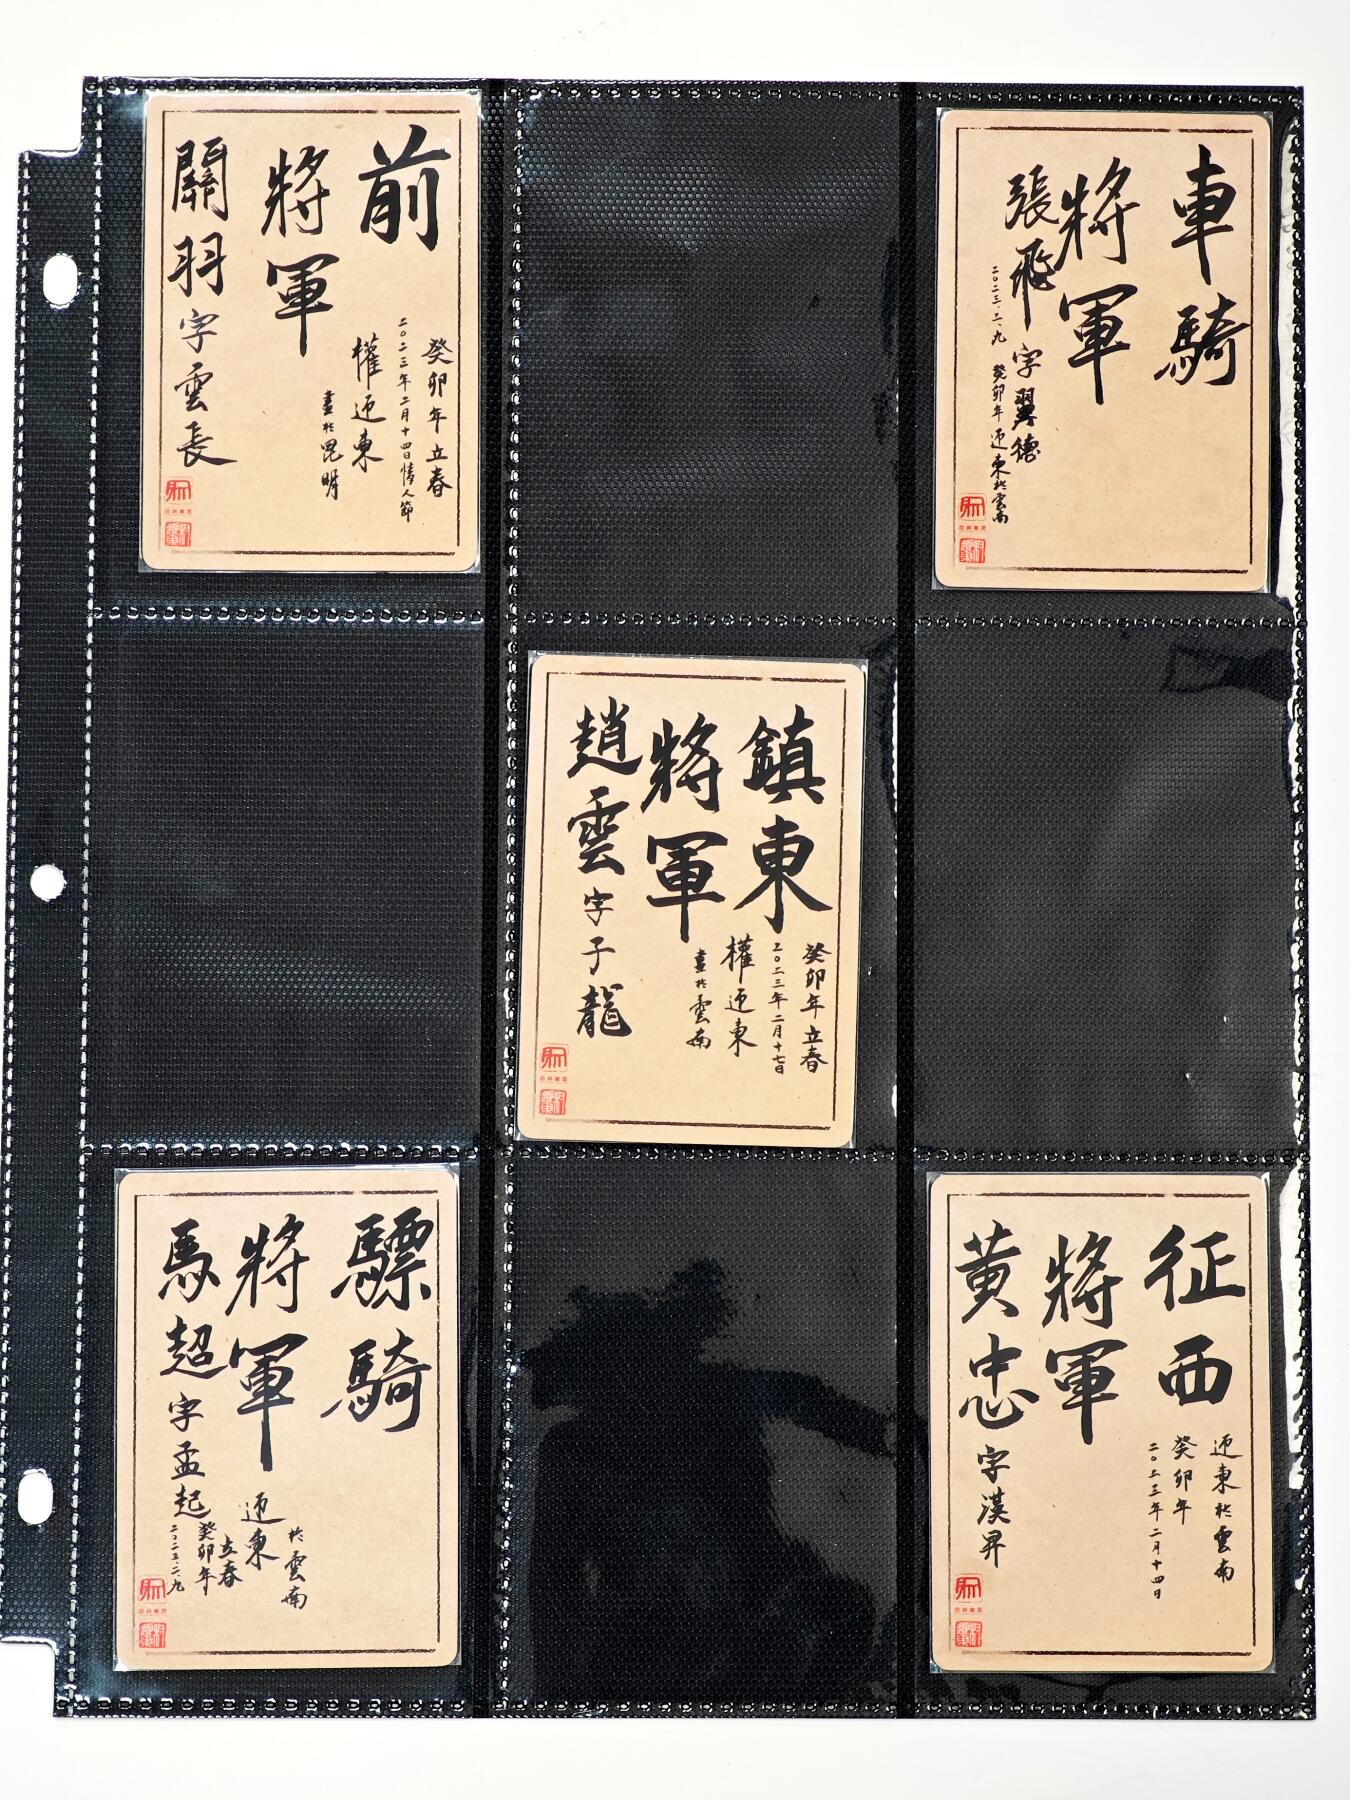 前
將軍
關羽字雲長
癸卯年立春
二〇二三年二月十四日情人節
權迎東
畫於昆明
車騎
將軍
張飛字翼德
二〇二三.二.九
癸卯年迎東於雲南
鎮東
將軍
趙雲字子龍
癸卯年立春
二〇二三年二月十七日
權迎東
畫於雲南
驃騎
將軍
馬超字孟起
於雲南
迎東
立春
癸卯年
二〇二三.二.九
征西
將軍
黃忠字漢昇
迎東於雲南
癸卯年
二〇二三年二月十四日